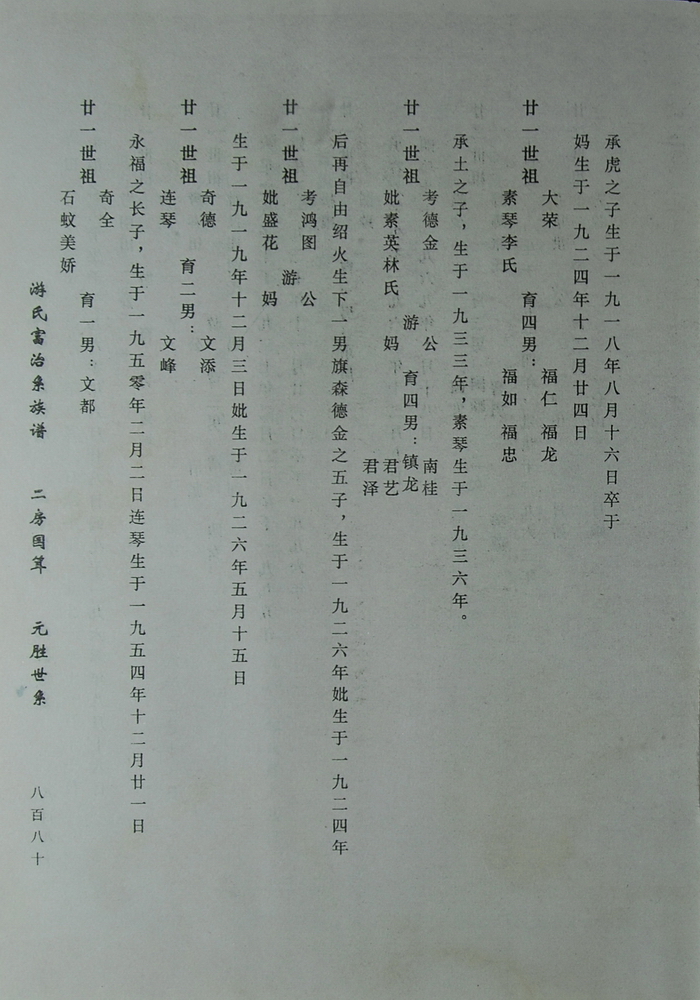 承虎之子生于一九一八年八月十六日卒于
妈生于一九二四年十二月廿四日
廿一世祖
大荣
素琴李氏
育四男：
福仁 福龙
福如 福忠
承土之子，生于一九三三年，素琴生于一九三六年。
廿一世祖
考德金
妣素英林氏
游
公
妈
育四男：镇龙
南桂
君艺
君泽
后再自由绍火生下一男旗森德金之五子，生于一九二六年妣生于一九二四年
廿一世祖
考鸿图
妣盛花
游
公
妈
生于一九一九年十二月三日妣生于一九二六年五月十五日
廿一世祖
奇德
连琴
育二男：
文添
文峰
永福之长子，生于一九五零年二月二日连琴生于一九五四年十二月廿一日
廿一世祖
奇全
石蚊美娇
育一男：文都
游氏富治系族谱 二房国箪 元胜世系 八百八十